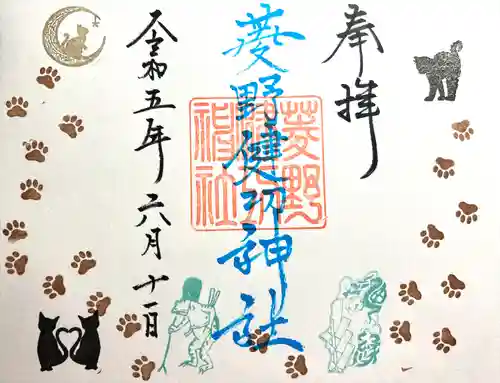 奉拝
菱野健功神社
菱野健功神社
令和五年六月十一日